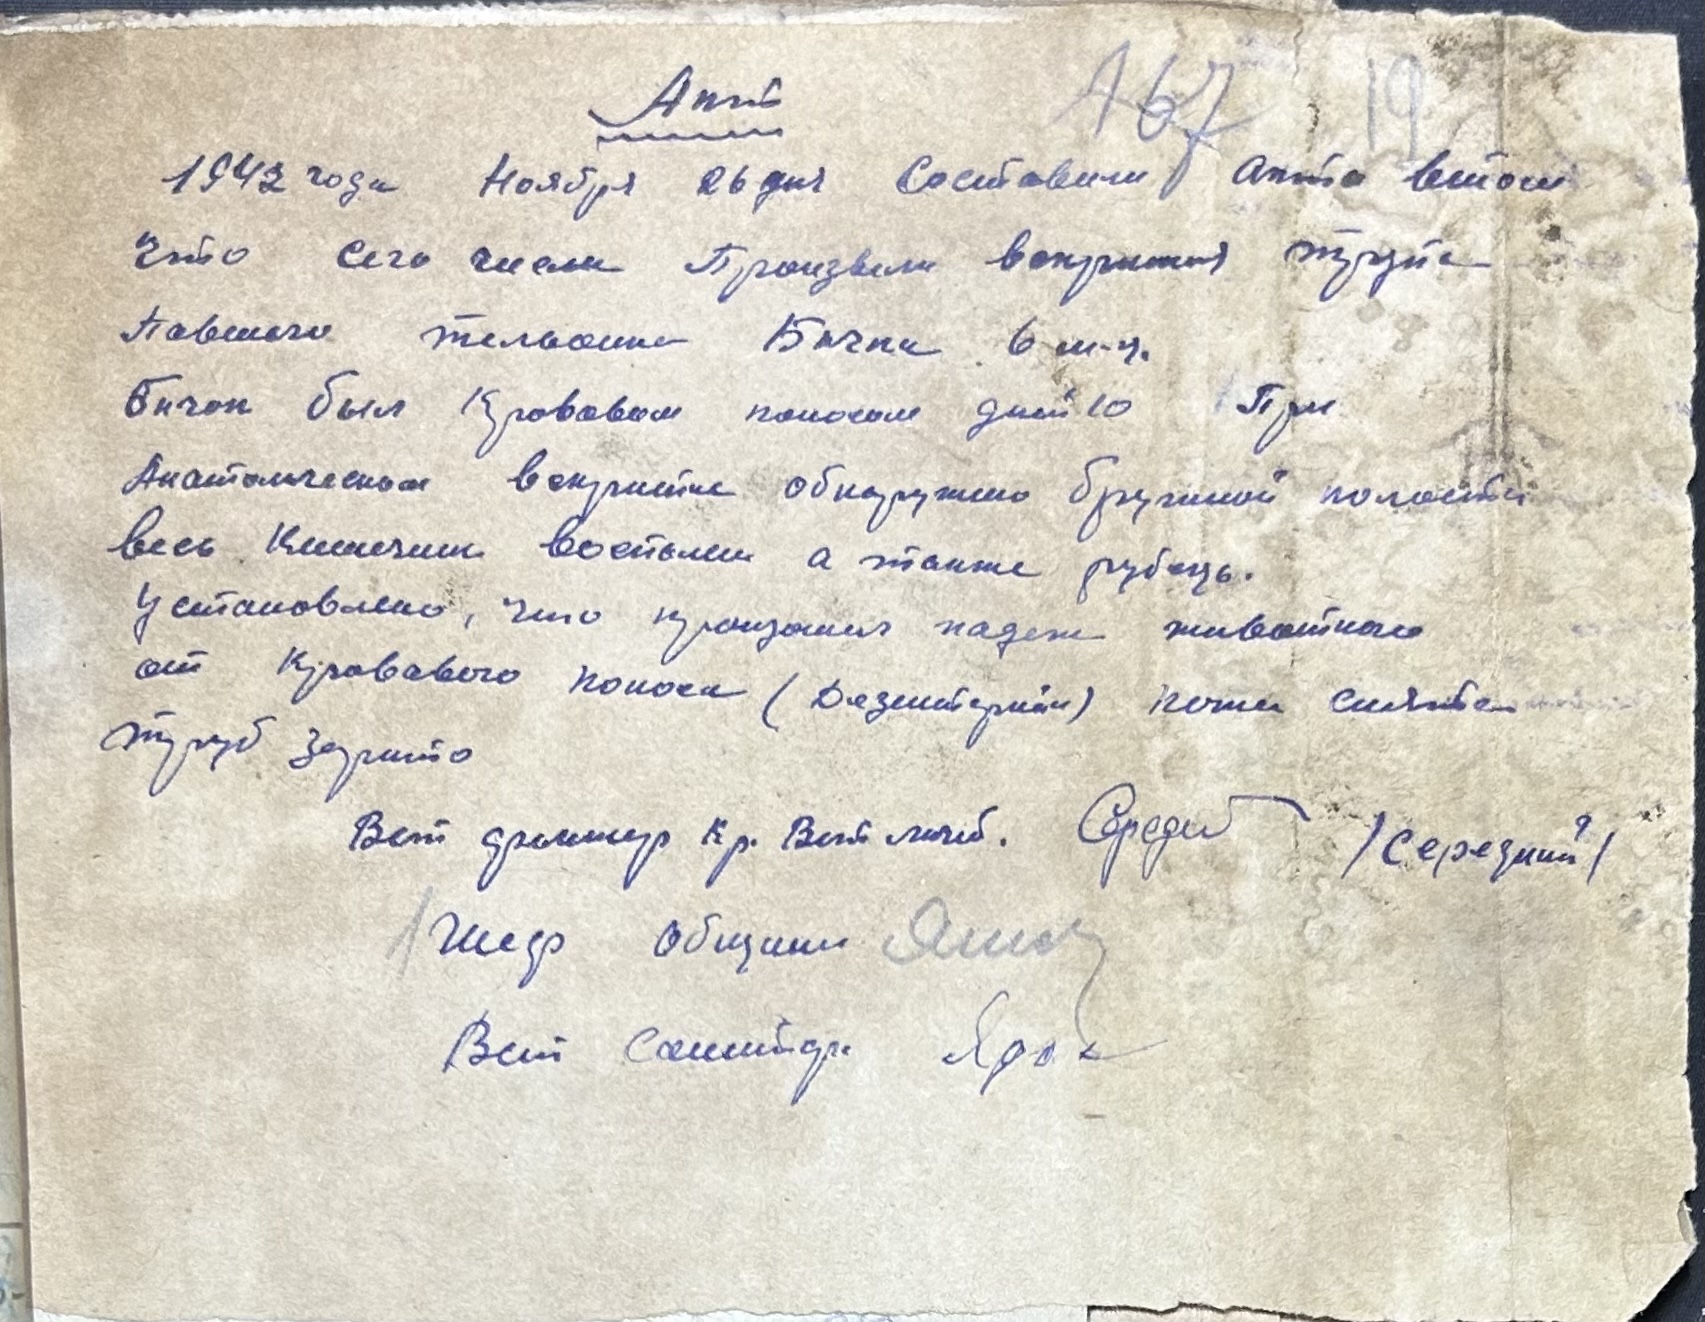 Акт
167 19
1942 года Ноября 26 дня Составили Акта втом
Что сего числа Произвели вскрытия трупа
Павшего теленка Бычка 6 м-ц.
Бычок был Кровавом поносом дней 10 При
Анатомическом вскрытие обнаружено брушной полости
весь Кишечник воспален а также рубець.
Установлено, что произошел падеж животного
от Кровавого поноса (Дезинтерии) кожа снята
труб зарыто
Вет фельшер Кр. Вет лечеб. /Середний/
Общины
Вет Санитар